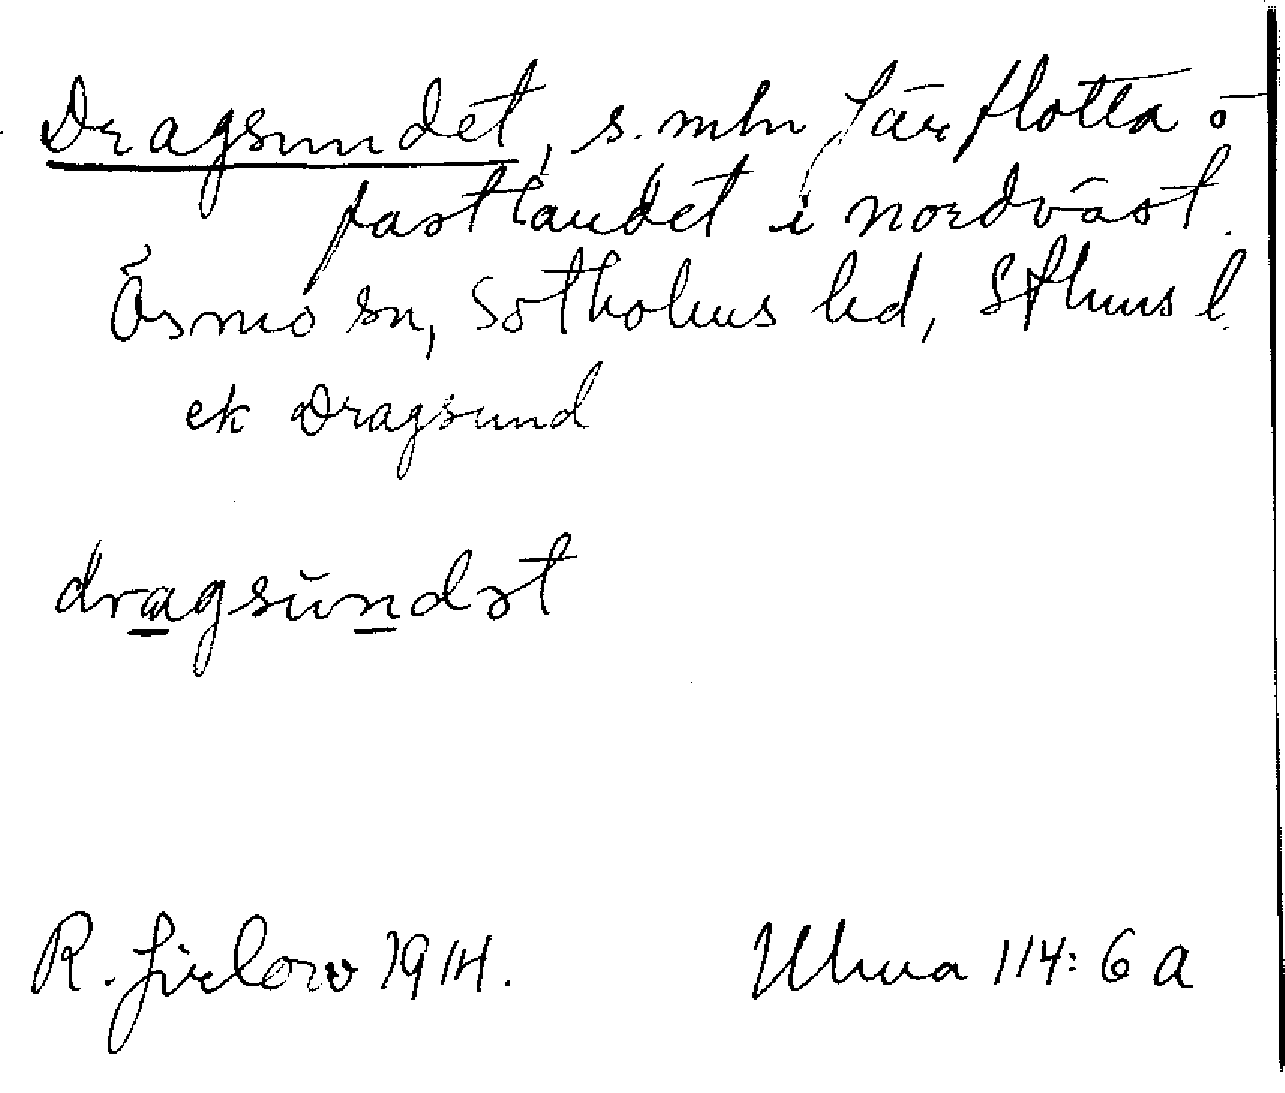 Dragsundet, s. mln Järflotta o
fastlandet i nordväst.
Ösmo sn, Sotholms hd, Sthms l.
ek Dragsund
dragsŭndət
R. Jirlow 1914.
Ulma 114: 6 a